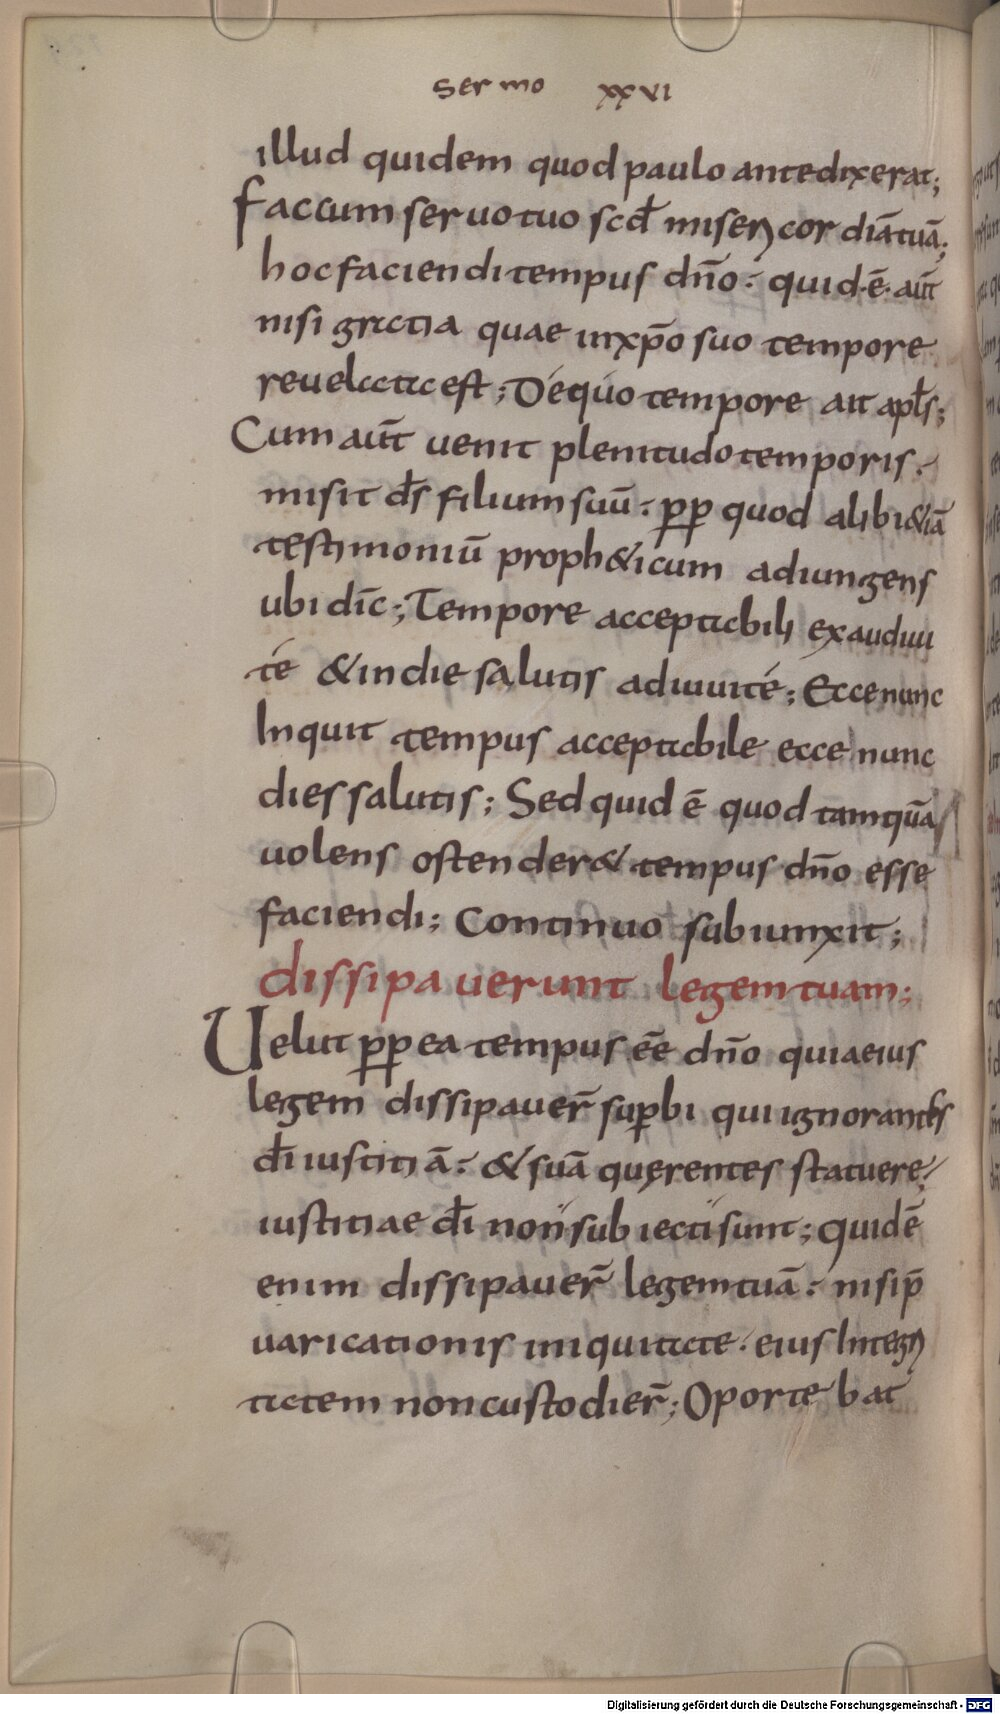 Sermo xxvi
illud quidem quod paulo antedixerat;
fac cum seruo tuo scđ misericordiā tuā;
hoc faciendi tempus dn̄o: quid·ē· aūt
nisi gratia quae inxp̄o suo tempore
reuelata est; Dequo tempore ait apl̄s;
Cum aūt uenit plenitudo temporis.
misit d̄s filium suū: ꝓꝑ quod alibi &iā
testimoniū proph&icum adiungens
ubi dic̄; Tempore acceptabili exaudiui
té & in die salutis adiuuité; Ecce nunc
Inquit tempus acceptabile ecce nunc
dies salutis; Sed quid ē quod tamquā
uolens ostender& tempus dn̄o esse
faciendi; Continuo subiunxit;
dissipauerunt legem tuam;
Velut ꝓꝑ ea tempus eē dn̄o quia eius
legem dissipauer̄ suꝑbi qui ignorantes
d̄i iustitiā: & suā querentes statuere;
iustitiae d̄i non subiecti sunt; Quid ē
enim dissipauer̄ legem tuā: nisi p̄
uaricationis iniquitate. eius Integri
tatem non custodier̄; Oportebat
Digitalisierung gefördert durch die Deutsche Forschungsgemeinschaft - DFG